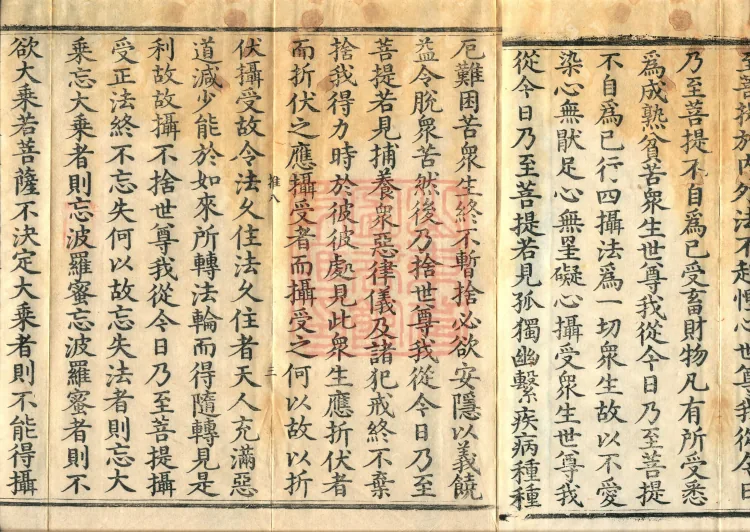 至菩提於內外法不起慳心世尊我從今日
乃至菩提不自爲已受畜財物凡有所受悉
爲成熟貧苦衆生世尊我從今日乃至菩提
不自爲已行四攝法爲一切衆生故以不愛
染心無猒足心無罣礙心攝受衆生世尊我
從今日乃至菩提若見孤獨幽繫疾病種種
厄難困苦衆生終不暫捨必欲安隱以義饒
益令脫衆苦然後乃捨世尊我從今日乃至
菩提若見捕養衆惡律儀及諸犯戒終不棄
捨我得力時於彼彼處見此衆生應折伏者
而折伏之應攝受者而攝受之何以故以折
推八
三
伏攝受故令法久住法久住者天人充滿惡
道減少能於如來所轉法輪而得隨轉見是
利故故攝不捨世尊我從今日乃至菩提攝
受正法終不忘失何以故忘失法者則忘大
乘忘大乘者則忘波羅蜜忘波羅蜜者則不
欲大乘若菩薩不決定大乘者則不能得攝